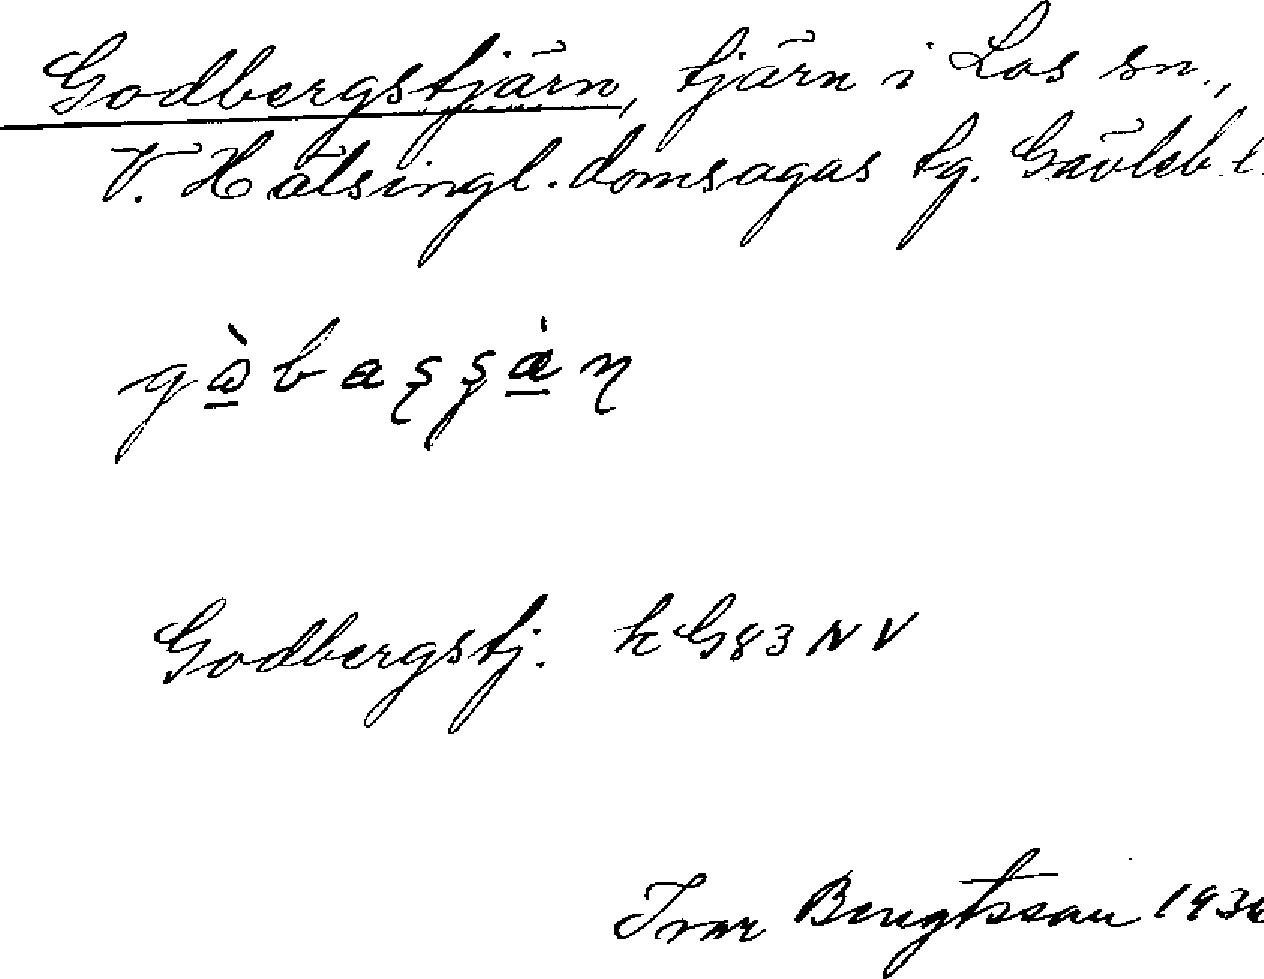 Godbergstjärn, tjärn i Los sn.,
V. Hälsingl. domsagas tg. Gävleb. l.
Godbergstj. kG83NV
Ivar Bengtsson